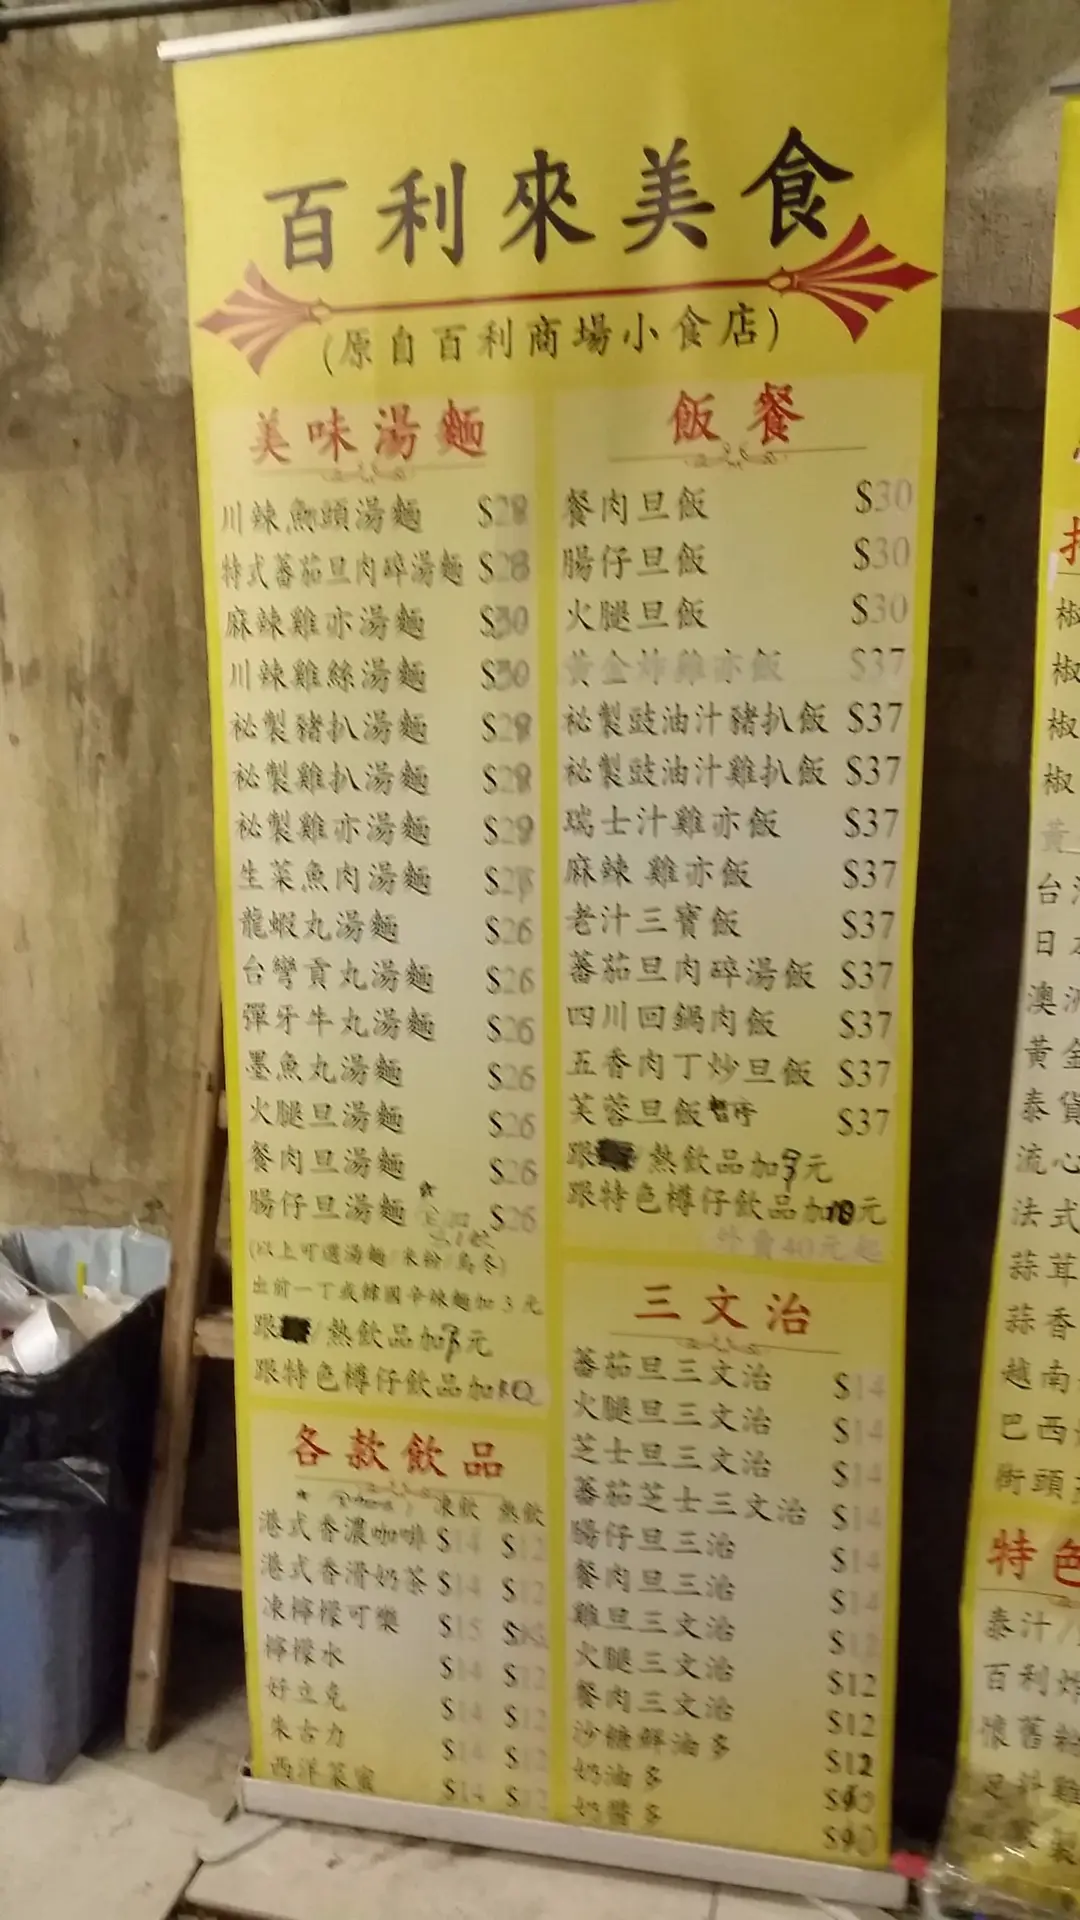 百利來美食
(原自百利商場小食店)
美味湯麵
川辣魚頭湯麵 $28
特式蕃茄旦肉碎湯麵 $28
麻辣雞亦湯麵 $30
川辣雞絲湯麵 $30
祕製豬扒湯麵 $29
祕製雞扒湯麵 $29
祕製雞亦湯麵 $29
生菜魚肉湯麵
龍蝦丸湯麵 $26
台彎貢丸湯麵 $26
彈牙牛丸湯麵 $26
墨魚丸湯麵 $26
火腿旦湯麵 $26
餐肉旦湯麵 $26
腸仔旦湯麵 $26
(以上可選湯麵/米粉/烏冬)
出前一丁或韓國辛辣麵加3元
跟 /熱飲品加 元
跟特色樽仔飲品加
各款飲品
凍飲 熱飲
港式香濃咖啡 $14 $12
港式香滑奶茶 $14 $12
凍檸檬可樂 $15
檸檬水 $14 $12
好立克 $14 $12
朱古力 $14 $12
西洋菜蜜 $14 $12
飯餐
餐肉旦飯 $30
腸仔旦飯 $30
火腿旦飯 $30
黃金炸雞亦飯 $37
祕製豉油汁豬扒飯 $37
祕製豉油汁雞扒飯 $37
瑞士汁雞亦飯 $37
麻辣 雞亦飯 $37
老汁三寶飯 $37
蕃茄旦肉碎湯飯 $37
四川回鍋肉飯 $37
五香肉丁炒旦飯 $37
芙蓉旦飯 暫停 $37
跟 熱飲品加 元
跟特色樽仔飲品加10元
外賣40元起
三文治
蕃茄旦三文治 $14
火腿旦三文治 $14
芝士旦三文治 $14
蕃茄芝士三文治 $14
腸仔旦三治 $14
餐肉旦三治 $14
雞旦三文治 $12
火腿三文治 $12
餐肉三文治 $12
沙糖鮮油多 $12
奶油多
奶醬多
椒
椒
椒
椒
黃
台
日本
澳洲
黃金
泰
流心
法式
蒜茸
蒜香
越南
巴西
街頭
特色
泰汁/
百利炸
懷舊
製